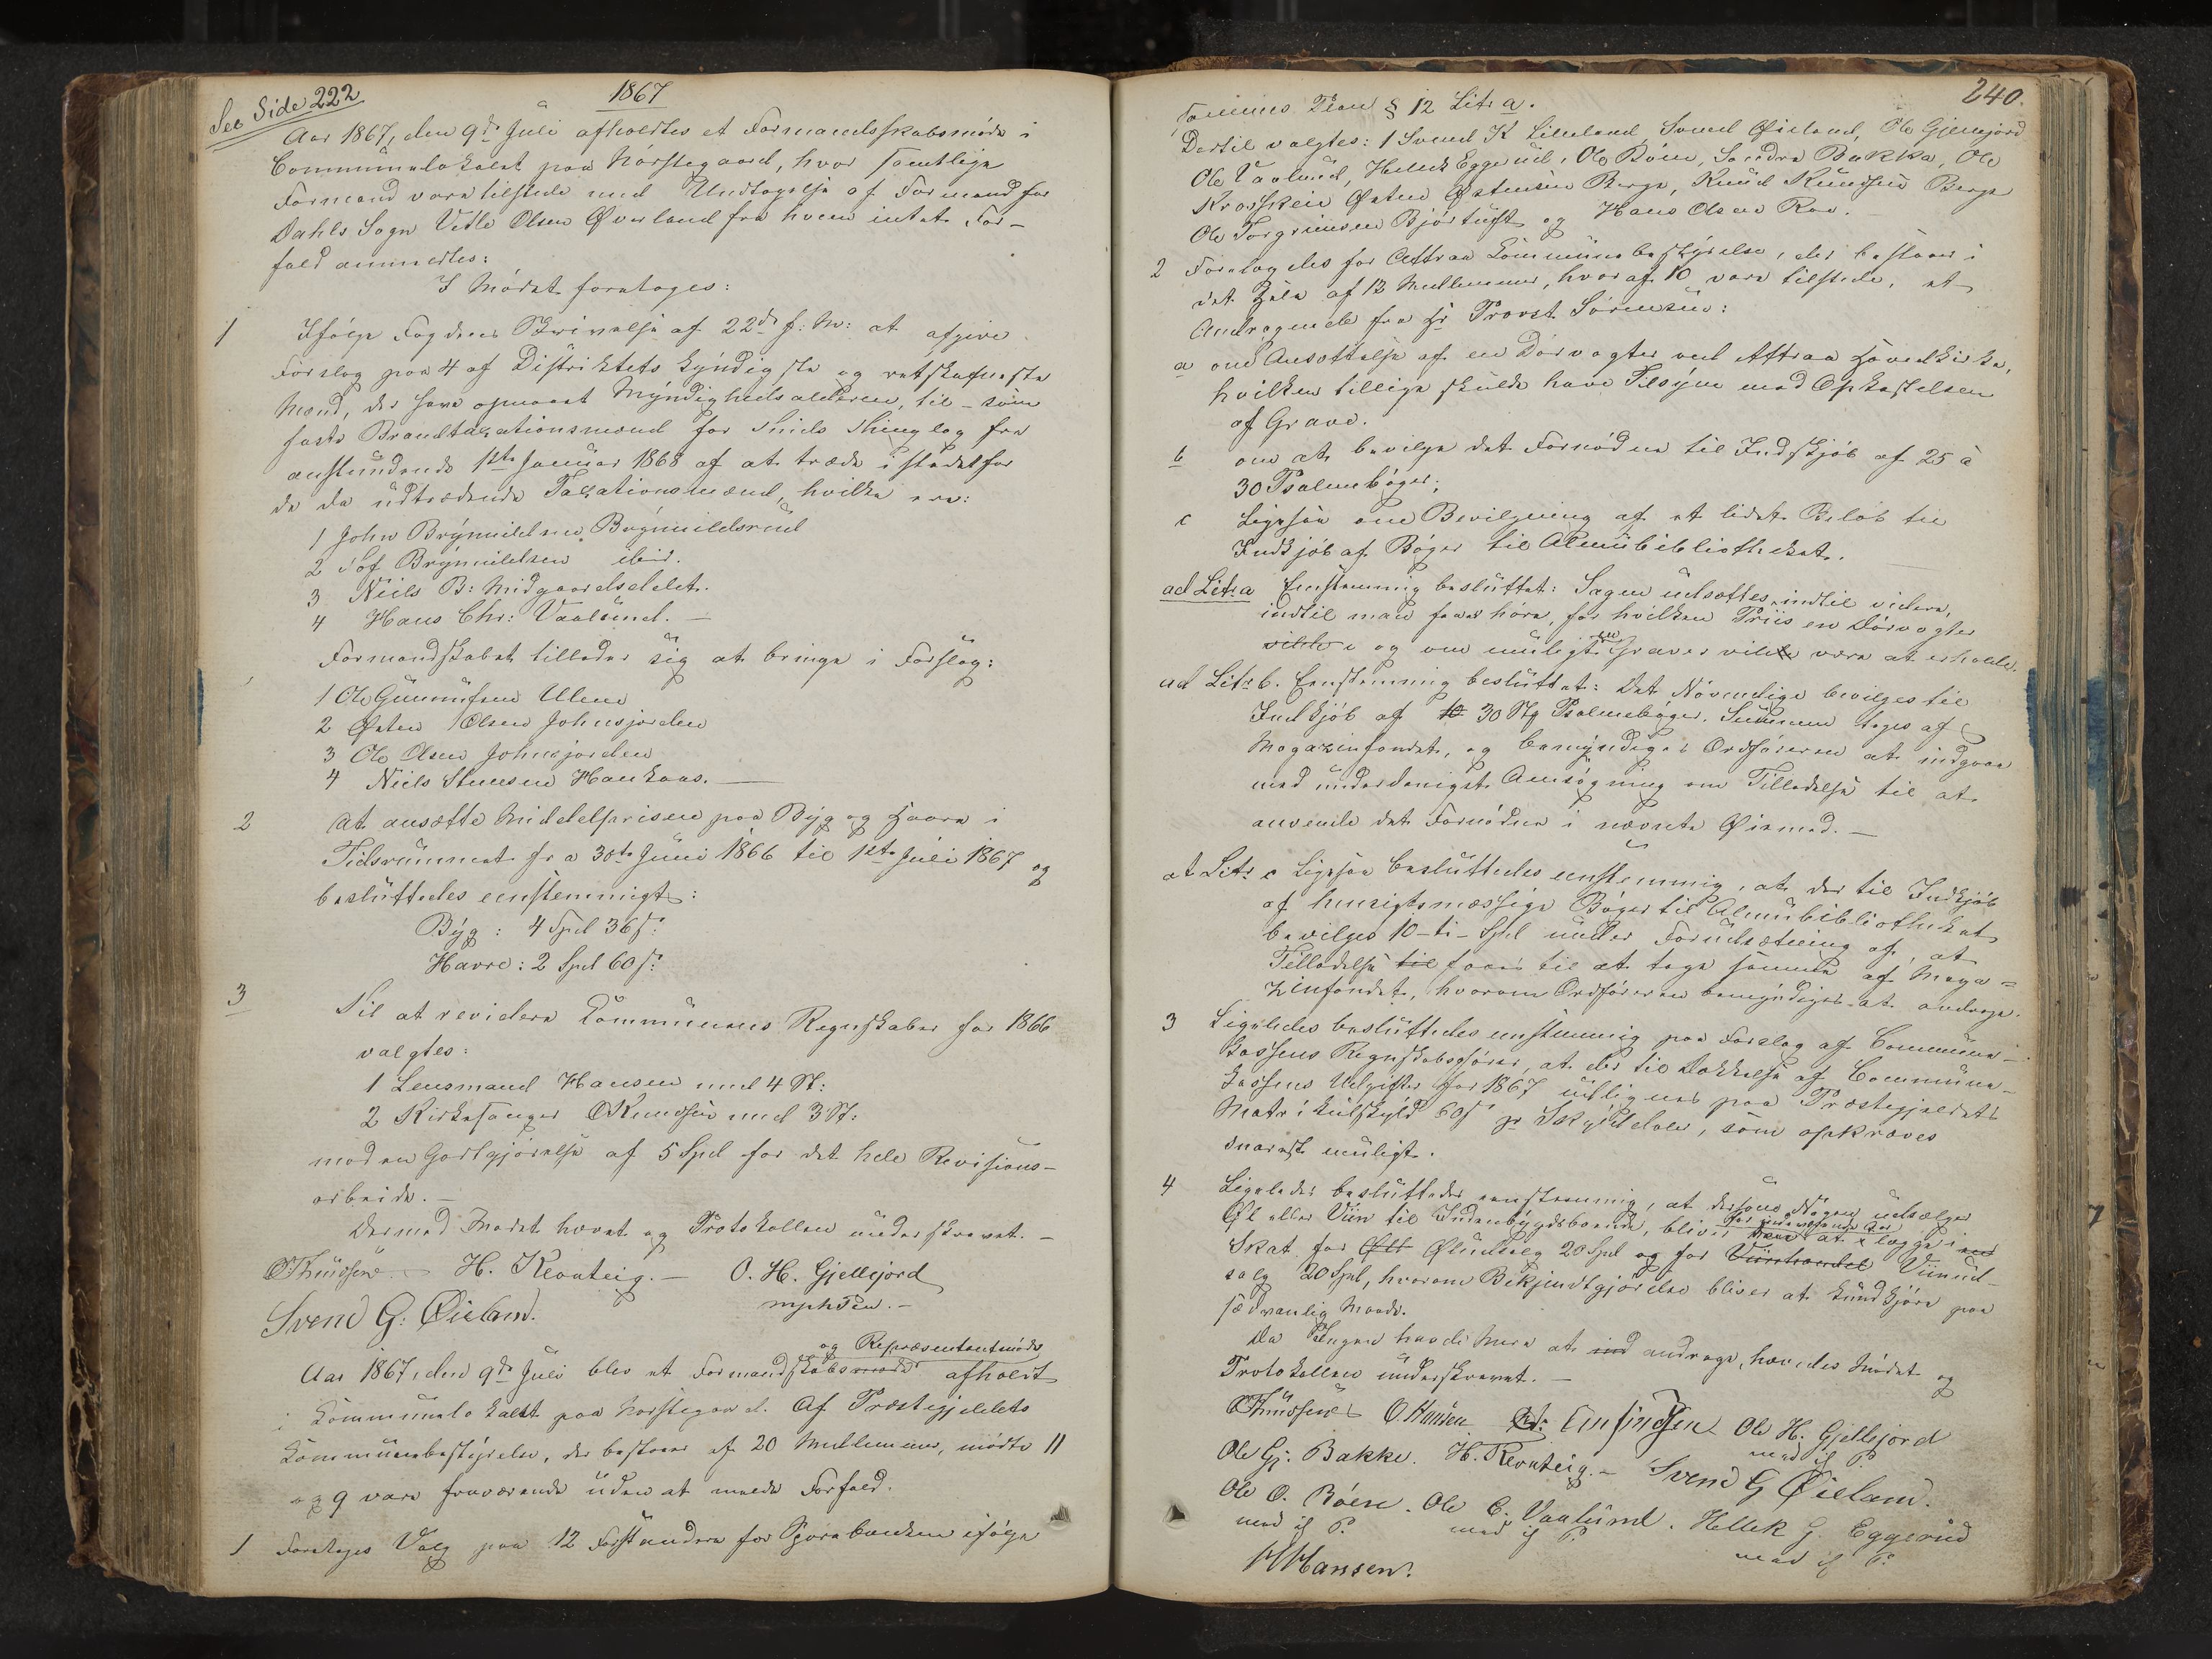 See Side 222
1867
Aar 1867, den 9de Juli afholdtes et Formandskabsmøde i
Communelokalet paa Norstegaard, hvor samtlige
Formænd vare tilstede med Undtagelse af Formand for
Dahls Sogn Vetle Olsen Øverland fra hvem intet For-
fald anmeldtes:
I Mødet foretoges:
1 Ifølge Fogdens Skrivelse af 22de f: M: at afgive
Forslag paa 4 af Distriktets kyndigste og retskafneste
Mænd, der have opnaaet Myndighedsalderen, til som
faste Brandtaxationsmænd for Thinglag fra
anstundende 1ste Januar 1868 af at træde istedetfor
de da udtrædende Taxationsmænd, hvilke ere:
1 John Brynnildsen Brynnildsrud
2 Tof Brynnildsen ibid.
3 Niels B: Midgaardsdelet.
4 Hans Chr: Vaalund. —
Formandskabet tillader sig at bringe i Forslag:
1 Ole Gunnufsen Ulen
2 Østen Olsen Johnsjorden
3 Ole Olsen Johnsjorden
4 Niels Stensen Haukaas. —
2 At ansætte Middelprisen paa Byg og Havre i
Tidsrummet fra 30te Juni 1866 til 1ste Juli 1867 og
besluttedes eenstemmigt:
Byg: 4 Spd 36 s:
Havre: 2 Spd 60 s:
3 Til at revidere Kommunens Regnskaber for 1866
valgtes:
1 Lensmand Hansen med 4 St:
2 Kirkesanger O Knudsen med 3 St:
mod en Godtgjørelse af 5 Spd for det hele Revisions-
arbeide. —
Dermed Mødet hævet og Protokollen underskrevet. —
OKnudsen H. Kravteig. — O. H. Gjellejord
Svend G. Øieland. mphPen. —
og Repræsentantmøde
Aar 1867, den 9de Juli blev et Formandskabsmøde afholdt
i Kommunelokalet paa Norstegaard. Af Præstegjeldets
Kommunebestyrelse, der bestaaer af 20 Medlemmer, mødte 11
og 9 vare fraværende uden at melde Forfald.
1 Foretoges Valg paa 12 Forstandere for Sparebanken ifølge
240.
sammes Plan § 12 Litr a.
Dertil valgtes: 1 Svend K Svend Øieland, Ole Gjellejord
Ole Vaalund, Hellek Eggerud, Ole Bøen, Sondre Bakka, Ole
Østen Østensen Berge, Knud Knudsen Berge
Ole Torgrimsen Bjørtuft og Hans Olsen Roe.
2 Foretoges for Attraa Kommunebestyrelse, der bestaaer i
det Hele af 13 Medlemmer, hvoraf 10 vare tilstede, et
Andragende fra Hr Provst Sørensen:
a om Ansættelse af en Dørvogter ved Attraa Hovedkirke,
hvilken tillige skulde have Tilsyn med Opkastelsen
af Grave.
b om at bevilge det Fornødne til Indkjøb af 25 à
30 Psalmebøger;
c Ligesaa om Bevilgning af et lidet Beløb til
Indkjøb af Bøger til Almubibliotheket.
ad Litr a Eenstemmig besluttet: Sagen udsættes indtil videre,
indtil man faaer høre, for hvilken Priis en Dørvogter
og om muligt en Graver vilde være at erholde.
ad Litr b. Eenstemmig besluttet: Det Nødvendige bevilges til
Indkjøb af 30 Stk Psalmebøger. Summen tages af
Magazinfondet, og bemyndiges Ordføreren at indgaae
med underdanigst Ansøgning om Tilladelse til at
anvende det Fornødne i nævnte Øiemed. —
at Litr c Ligesaa besluttedes eenstemmig, at der til Indkjøb
af hensigtsmæssige Bøger til Almubibliotheket
bevilges 10 - ti - Spd under Forudsætning af, at
Tilladelse til faaes til at tage samme af Maga-
zinfondet, hvorom Ordføreren bemyndiges at andrage.
3 Ligeledes besluttedes eenstemmig paa Forslag af Commune-
kassens Regnskabsfører, at der til Dækkelse af Commune-
kassens Udgifter for 1867 udlignes paa Præstegjeldets
Matrikulskyld 60 s pr Skylddaler, som opkræves
snarest muligt.
4 Ligeledes besluttedes eenstemmig, at dersom Nogen udsælger
Øl eller Viin til Indenbygdsboende, bliver at lægge i
Skat for Øludsalg 20 Spd og for Viinhandel Viinud-
salg 20 Spd, hvorom Bekjendtgjørelse bliver at kundgjøre paa
sædvanlig Maade.
Da Ingen havde Mere at ind andrage, hævedes Mødet og
Protokollen underskrevet. —
OKnudsen O. Hansen Ole H. Gjellejord
med i P.
Ole Gj: Bakke. H. Kravteig. — Svend G Øieland.
Ole O. Bøen. Ole C. Vaalund. Hellek G. Eggerud
med i P. med i P. med i P.
HHansen.